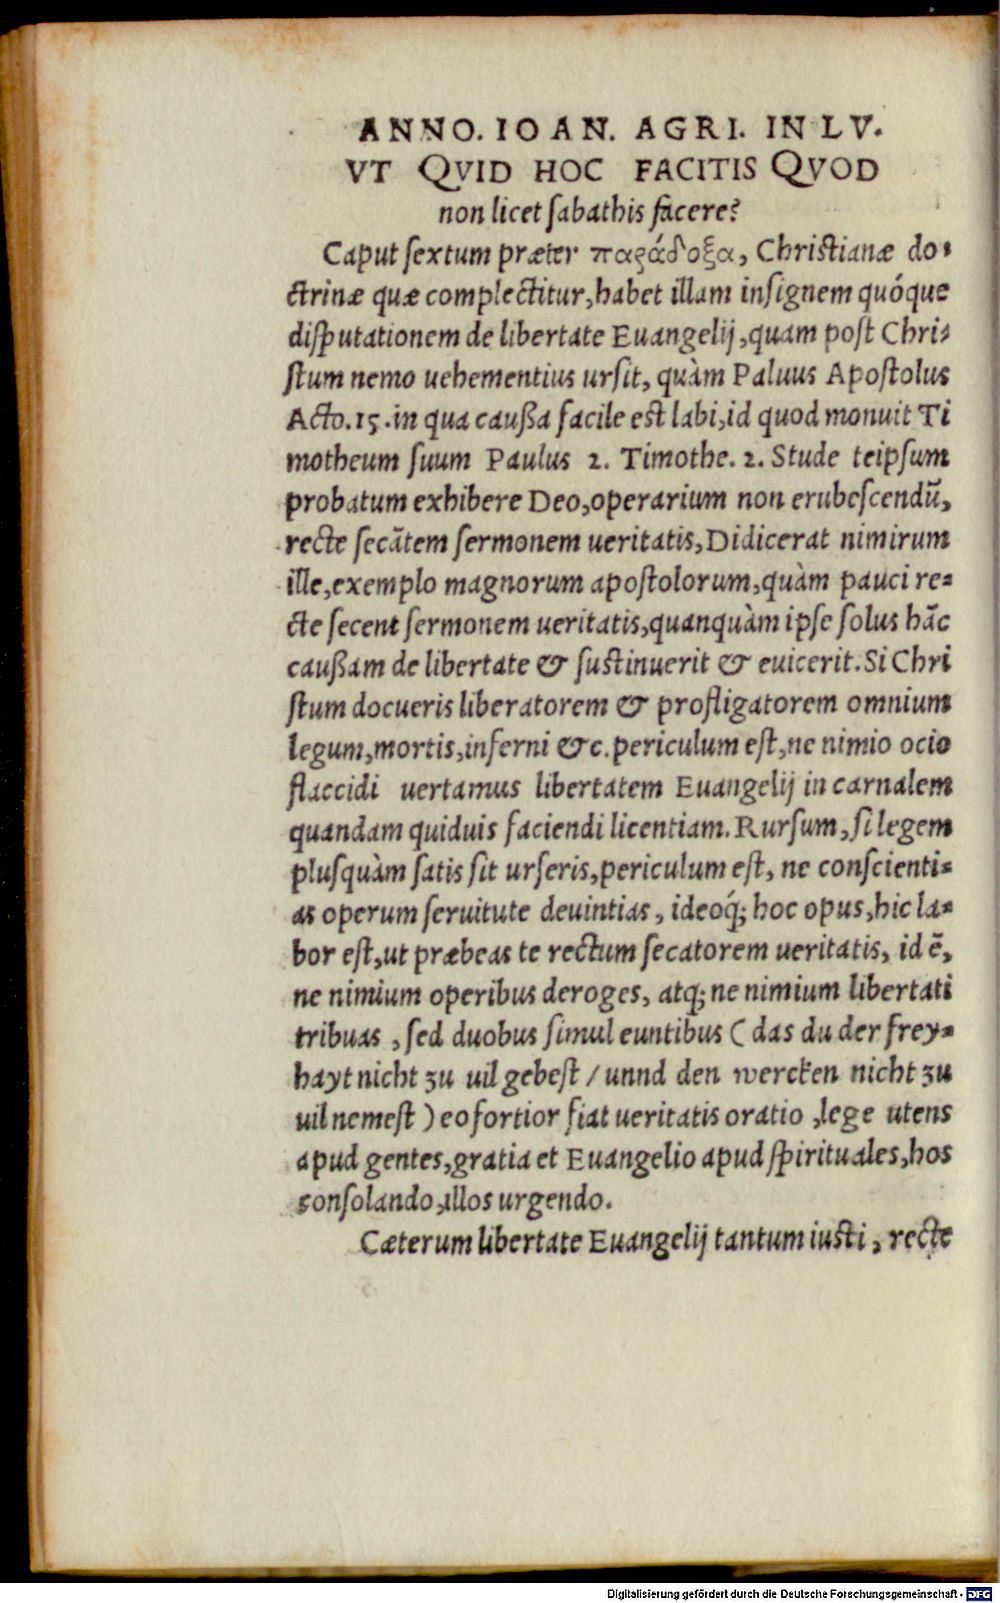 ANNO. IOAN. AGRI. IN LV.
VT QVID HOC FACITIS QVOD
non licet ſabathis facere?
Caput ſextum præter παράδοξα, Chriſtianæ do-
ctrinæ quæ complectitur,habet illam inſignem quóque
diſputationem de libertate Euangelij,quam poſt Chri-
ſtum nemo uehementius urſit, quàm Paluus Apoſtolus
Acto.15.in qua cauſſa facile eſt labi,id quod monuit Ti
motheum ſuum Paulus 2. Timothe. 2. Stude teipſum
probatum exhibere Deo,operarium non erubeſcendū,
recte ſecātem ſermonem ueritatis,Didicerat nimirum
ille,exemplo magnorum apoſtolorum,quàm pauci re-
cte ſecent ſermonem ueritatis,quanquàm ipſe ſolus hāc
cauſſam de libertate & ſuſtinuerit & euicerit.Si Chri
ſtum docueris liberatorem & profligatorem omnium
legum,mortis,inferni &c.periculum eſt,ne nimio ocio
flaccidi uertamus libertatem Euangelij in carnalem
quandam quiduis faciendi licentiam.Rurſum,ſi legem
pluſquàm ſatis ſit urſeris,periculum eſt, ne conſcienti-
as operum ſeruitute deuintias, ideoq́; hoc opus,hic la-
bor eſt,ut præbeas te rectum ſecatorem ueritatis, id ē,
ne nimium operibus deroges, atq; ne nimium libertati
tribuas ,ſed duobus ſimul euntibus ( das du der frey-
hayt nicht zu uil gebeſt / unnd den wercken nicht zu
uil nemeſt ) eo fortior fiat ueritatis oratio ,lege utens
apud gentes,gratia et Euangelio apud ſpirituales,hos
conſolando,illos urgendo.
Cæterum libertate Euangelij tantum iuſti, recte
Digitalisierung gefördert durch die Deutsche Forschungsgemeinschaft - DFG